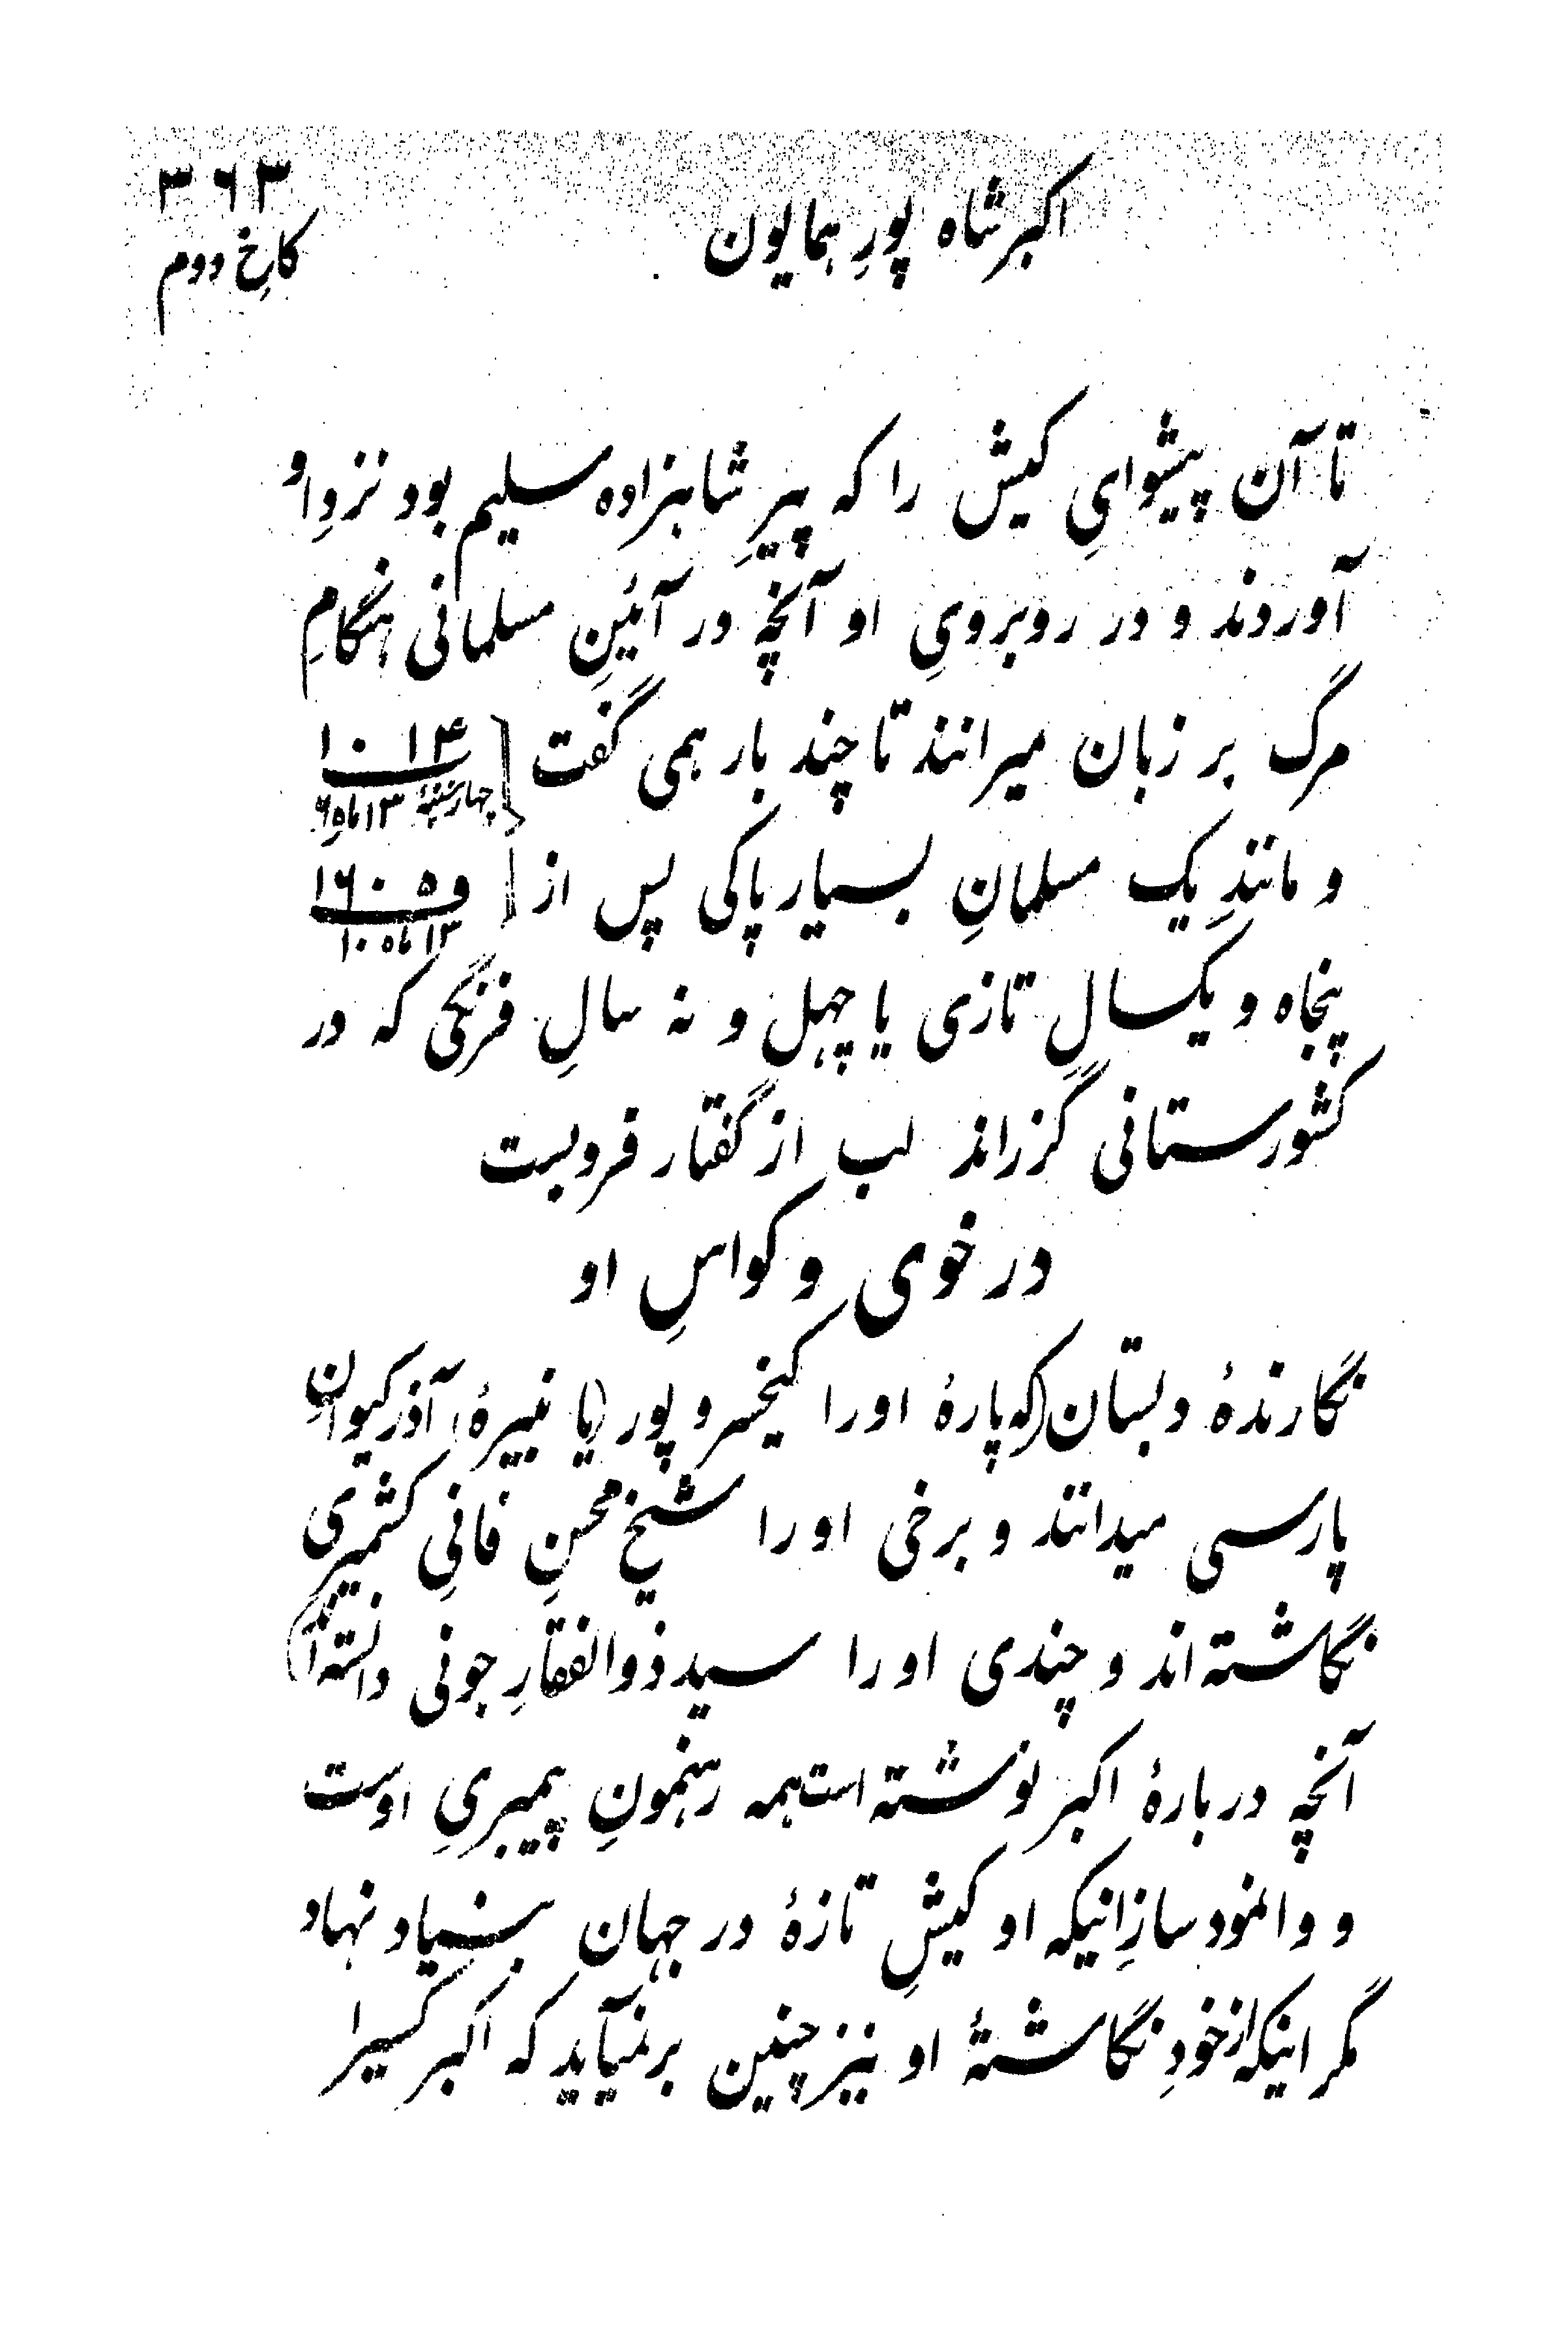 ۳۶۳
اکبر شاه پورِ همایون
کاخِ دوم
تا آن پیشوایِ کیش را که پیرِ شاهزاده سلیم بود نزدِ او
آوردند و در روبرویِ او آنچه در آئینِ مسلمانی هنگامِ
مرگ بر زبان میرانند تا چند بار همی گفت
۱۰۱۴
چهارشنبهٔ ۱۳ ماه ۶
و مانندِ یک مسلمانِ بسیار پاکی پس از
۱۶۰۵ و
۱۳ ماه ۱۰
پنجاه و یکسالِ تازی یا چهل و نه سالِ فرنگی که در
کشورستانی گزراند لب از گفتار فروبست
در خوی و کواسِ او
نگارندهٔ دبستان (که پارهٔ اورا کیخسرو پور (یا نبیرهٔ) آذرکیوانِ
پارسی میدانند و برخی اورا شیخ محسنِ فانیِ کشمیری
نگاشته‌اند و چندی اورا سید ذوالفقارِ جونی دانسته‌اند)
آنچه دربارهٔ اکبر نوشته است همه رهنمونِ پیمبریِ اوست
و وانمود سازِ اینکه او کیشِ تازهٔ در جهان بنیاد نهاد
مگر اینکه از خودِ نگاشتهٔ او نیز چنین برنمیآید که اکبر کسیرا